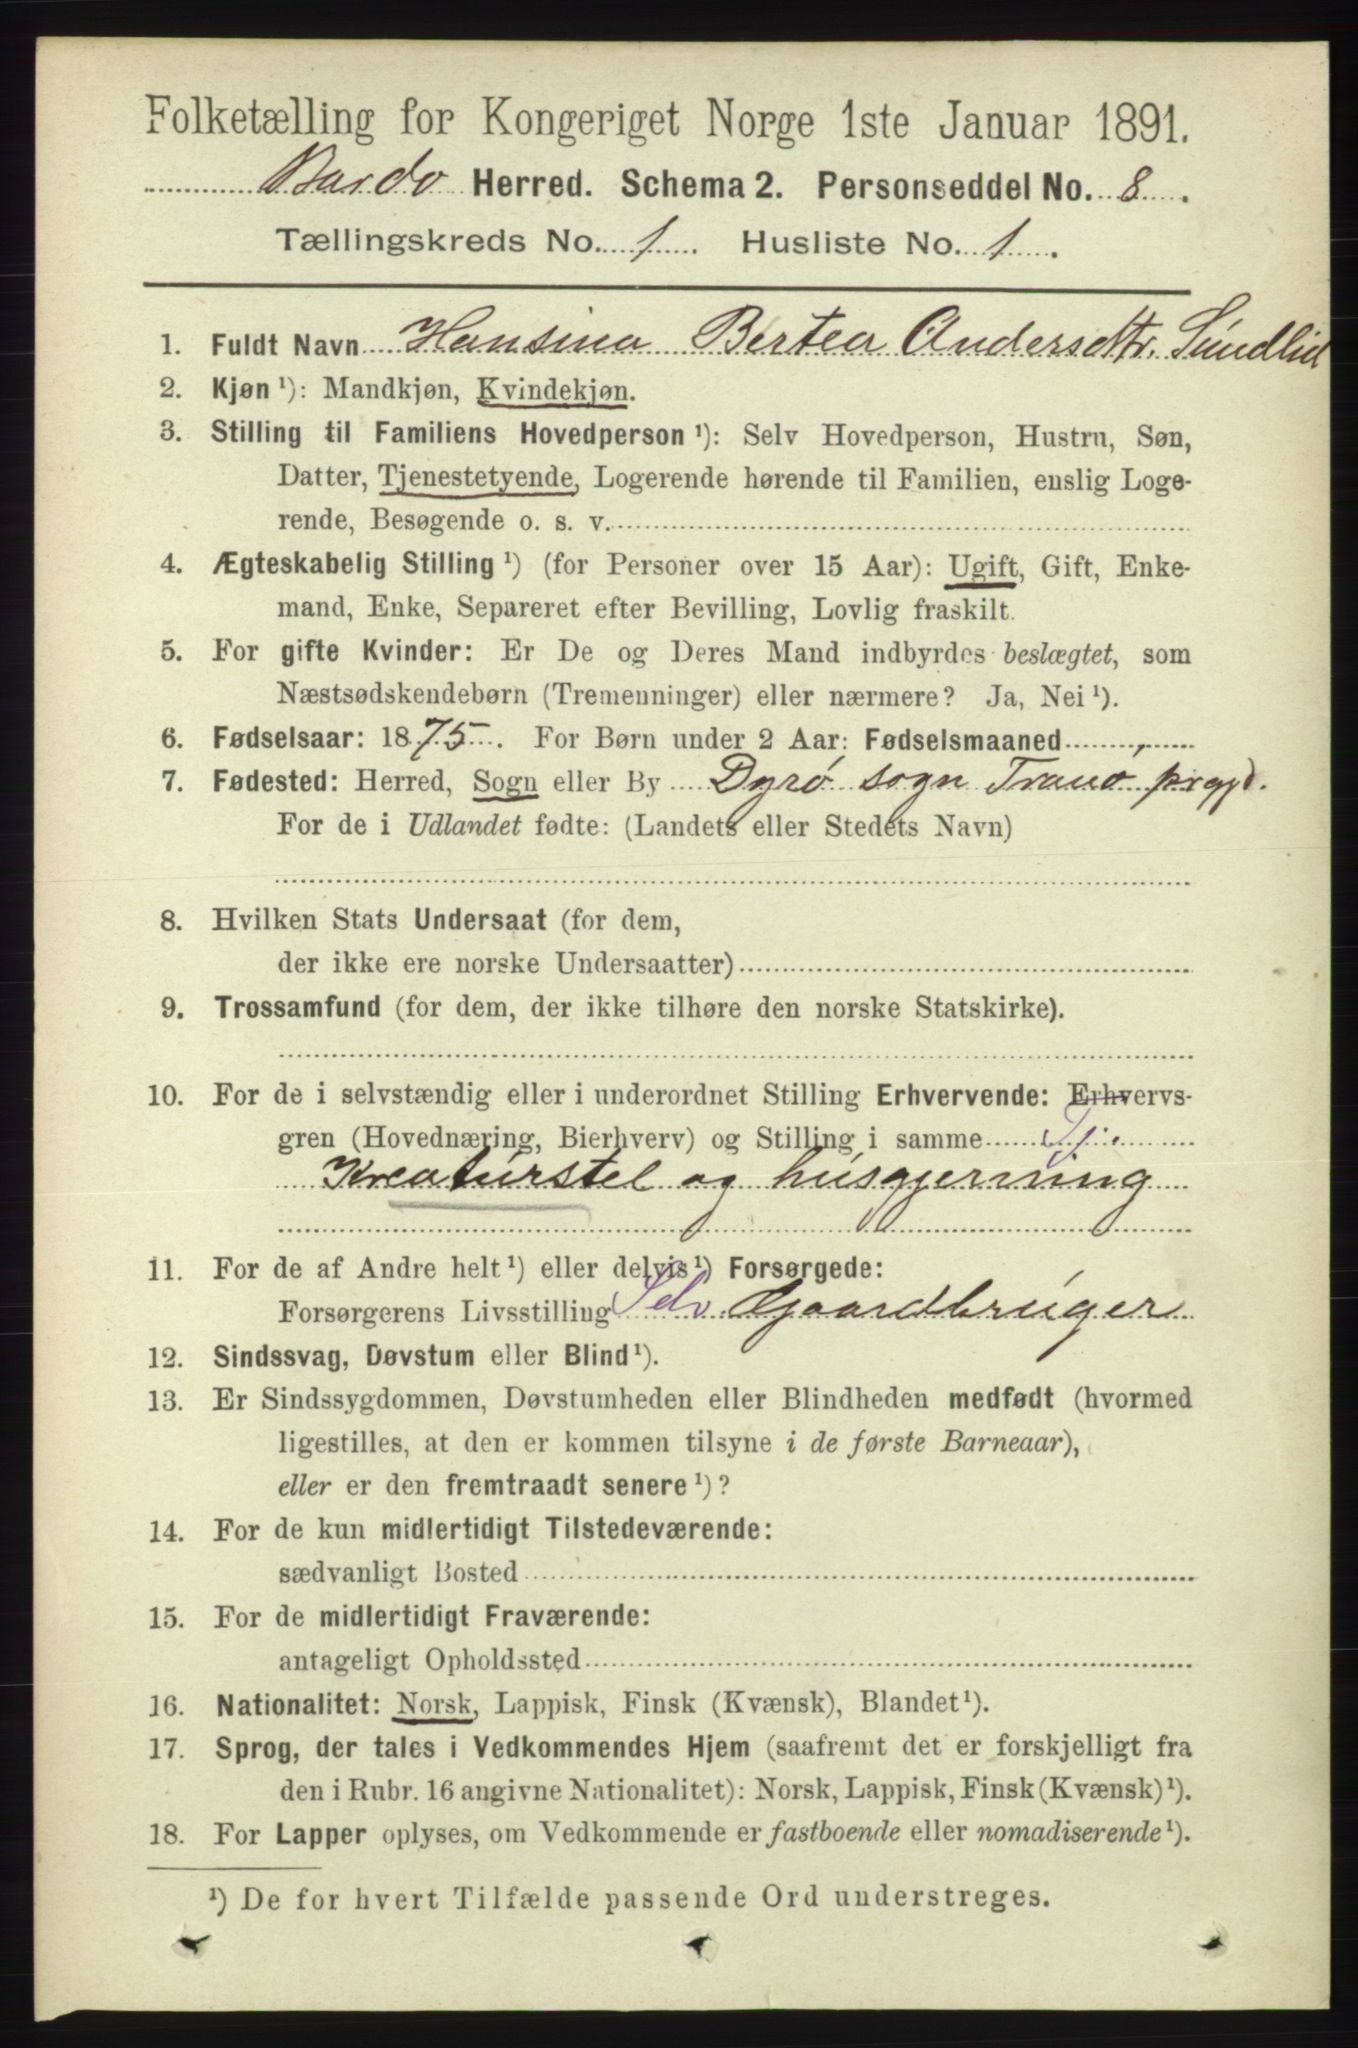 Folketælling for Kongeriget Norge 1ste Januar 1891.
Bardo Herred. Schema 2. Personseddel No. 8.
Tællingskreds No. 1. Husliste No. 1.
1. Fuldt Navn Hansina Bertea Andersdtr. Sundlid
2. Kjøn ¹): Mandkjøn, Kvindekjøn.
3. Stilling til Familiens Hovedperson ¹): Selv Hovedperson, Hustru, Søn,
Datter, Tjenestetyende, Logerende hørende til Familien, enslig Loge-
rende, Besøgende o. s. v.
4. Ægteskabelig Stilling ¹) (for Personer over 15 Aar): Ugift, Gift, Enke-
mand, Enke, Separeret efter Bevilling, Lovlig fraskilt.
5. For gifte Kvinder: Er De og Deres Mand indbyrdes beslægtet, som
Næstsødskendebørn (Tremenninger) eller nærmere? Ja, Nei ¹).
6. Fødselsaar: 1875. For Børn under 2 Aar: Fødselsmaaned
7. Fødested: Herred, Sogn eller By Dyrø sogn Tranø prgjd.
For de i Udlandet fødte: (Landets eller Stedets Navn)
8. Hvilken Stats Undersaat (for dem,
der ikke ere norske Undersaatter)
9. Trossamfund (for dem, der ikke tilhøre den norske Statskirke).
10. For de i selvstændig eller i underordnet Stilling Erhvervende: Erhvervs-
gren (Hovednæring, Bierhverv) og Stilling i samme Tj.
Kreaturstel og husgjerning
11. For de af Andre helt ¹) eller delvis ¹) Forsørgede:
Forsørgerens Livsstilling Selv Gaardbruger
12. Sindssvag, Døvstum eller Blind ¹).
13. Er Sindssygdommen, Døvstumheden eller Blindheden medfødt (hvormed
ligestilles, at den er kommen tilsyne i de første Barneaar),
eller er den fremtraadt senere ¹)?
14. For de kun midlertidigt Tilstedeværende:
sædvanligt Bosted
15. For de midlertidigt Fraværende:
antageligt Opholdssted
16. Nationalitet: Norsk, Lappisk, Finsk (Kvænsk), Blandet ¹).
17. Sprog, der tales i Vedkommendes Hjem (saafremt det er forskjelligt fra
den i Rubr. 16 angivne Nationalitet): Norsk, Lappisk, Finsk (Kvænsk) ¹).
18. For Lapper oplyses, om Vedkommende er fastboende eller nomadiserende ¹).
¹) De for hvert Tilfælde passende Ord understreges.